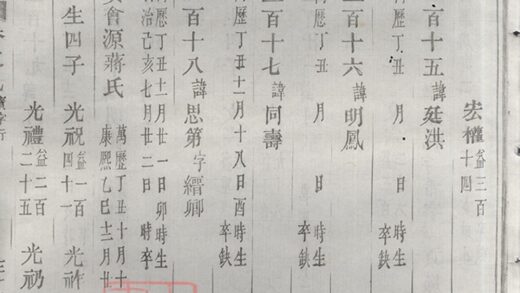 宏權 益三百
十四
百十五 諱廷洪
丁丑 月 日 時生
卒缺
百十六 諱明鳳
曆丁丑 月 日 時生
卒缺
百十七 諱同壽
曆丁丑十一月十八日酉時生
卒缺
百十八 諱思第 字縉卿
曆丁丑十一月廿一日卯時生
治己亥七月廿二日 時卒
會源蔣氏 萬曆丁丑十月十
康熙乙巳十二月廿
生四子 光祝 益一百
四十一 光祚
光禮 益二百
二十五 光礽